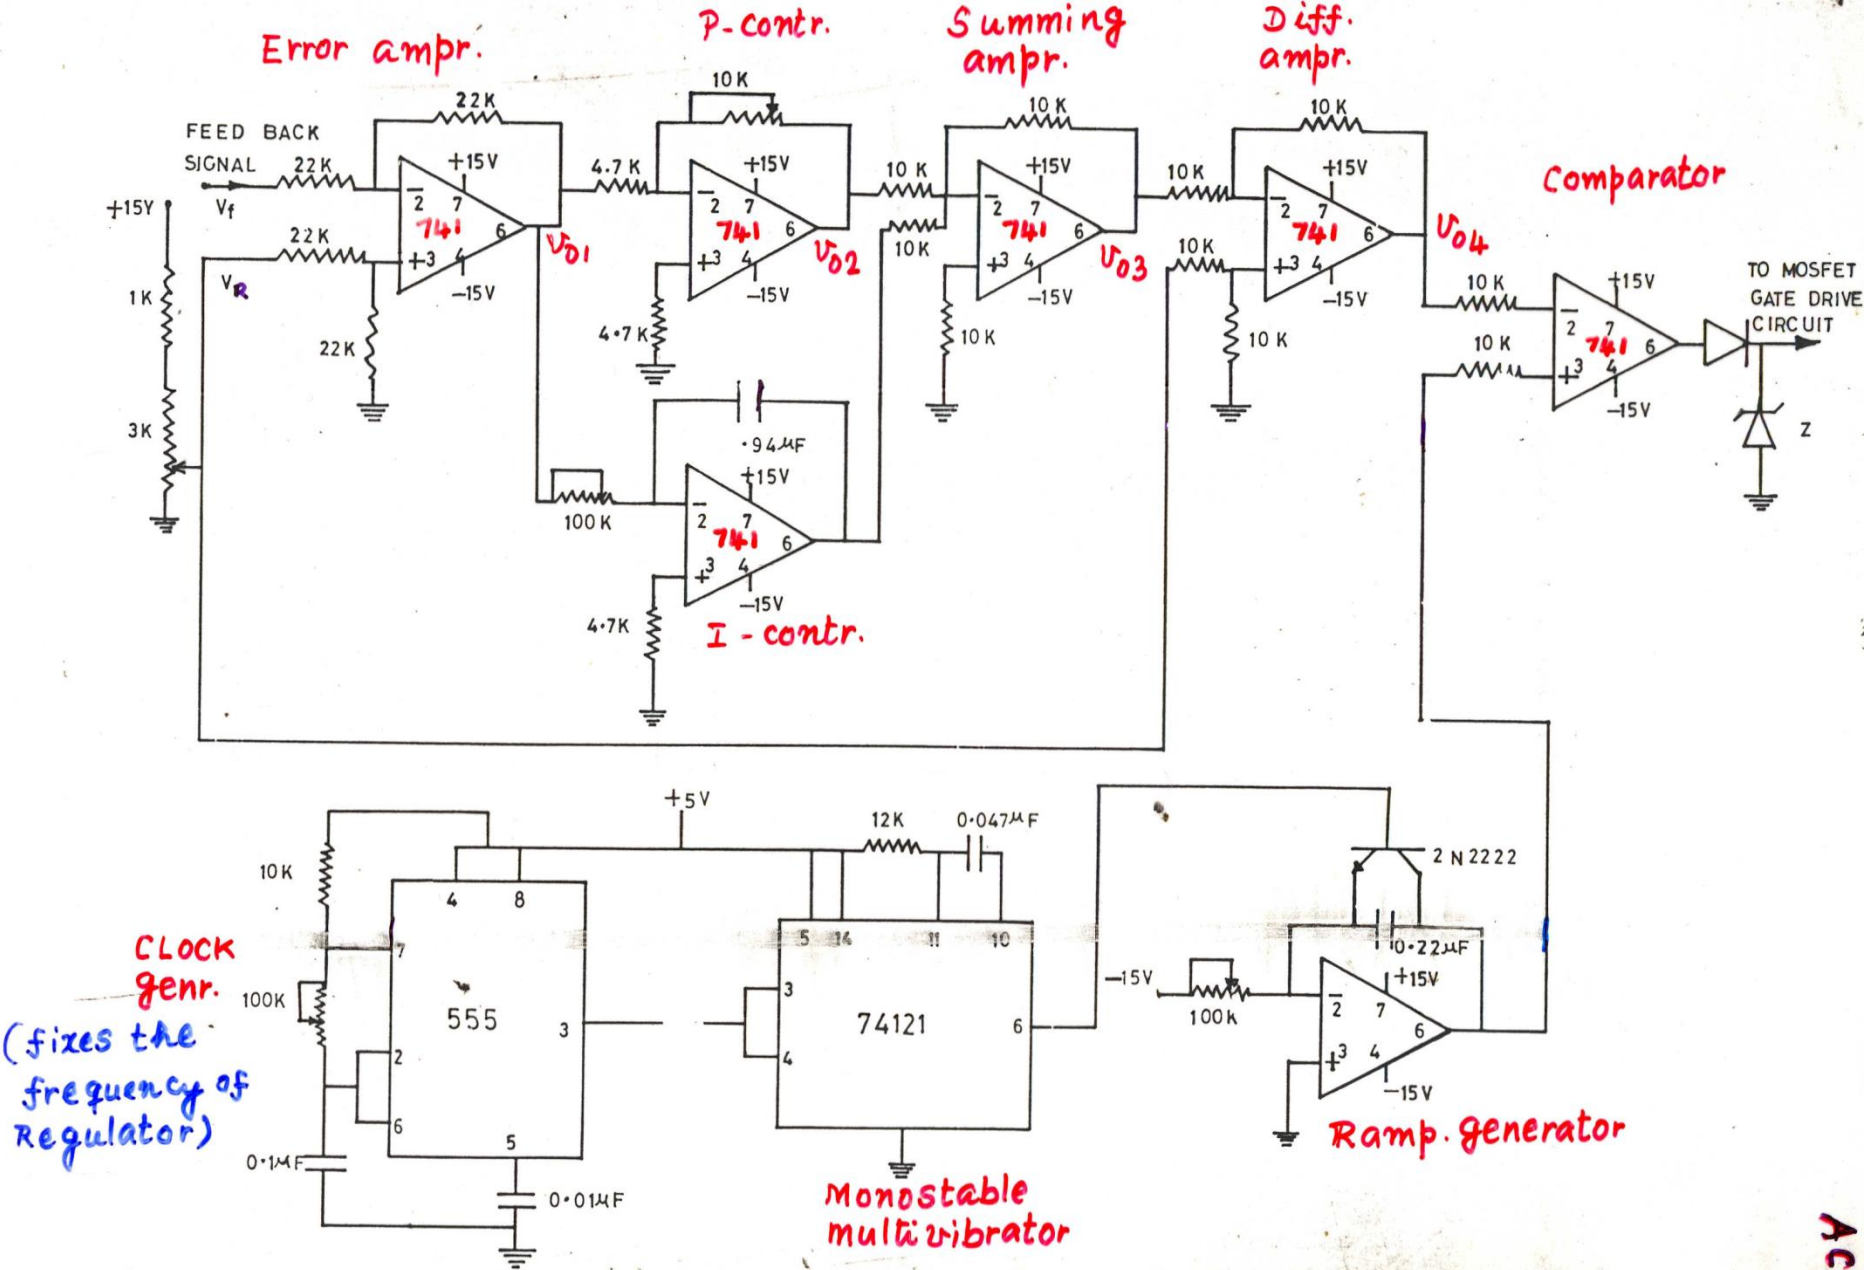 Error ampr.
P-contr.
Summing
ampr.
Diff.
ampr.
Comparator
FEED BACK
SIGNAL
Vf
22K
22K
+15V
-2
7
741
6
+3
4
-15V
V01
+15V
1K
3K
VR
22K
22K
4.7K
10K
+15V
-2
7
741
6
+3
4
-15V
V02
4.7K
10K
10K
10K
+15V
-2
7
741
6
+3
4
-15V
V03
10K
10K
10K
10K
+15V
-2
7
741
6
+3
4
-15V
V04
10K
10K
10K
+15V
-2
7
741
6
+3
4
-15V
TO MOSFET
GATE DRIVE
CIRCUIT
Z
100K
.94µF
+15V
-2
7
741
6
+3
4
-15V
4.7K
I-contr.
+5V
10K
4
8
CLOCK
genr.
(fixes the
frequency of
Regulator)
100K
7
555
3
2
6
5
0.1µF
0.01µF
12K
0.047µF
5
14
11
10
3
74121
6
4
Monostable
multivibrator
2N2222
0.22µF
-15V
100K
+15V
-2
7
6
+3
4
-15V
Ramp. generator
AC